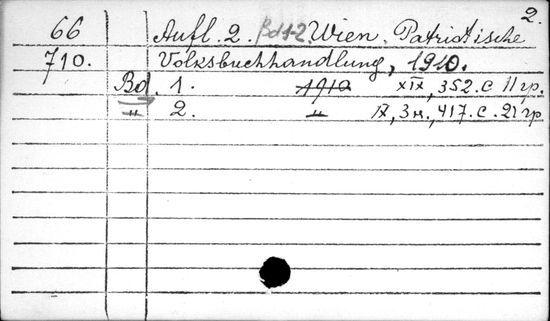 2.
66 Aufl. 2. Bd 1-2. Wien. Patriotische
710. Volksbuchhandlung, 1910.
Bd. 1. 1910 XIX, 352. c 11 гр.
" 2. " IX, 3 н., 417. c. 21 гр